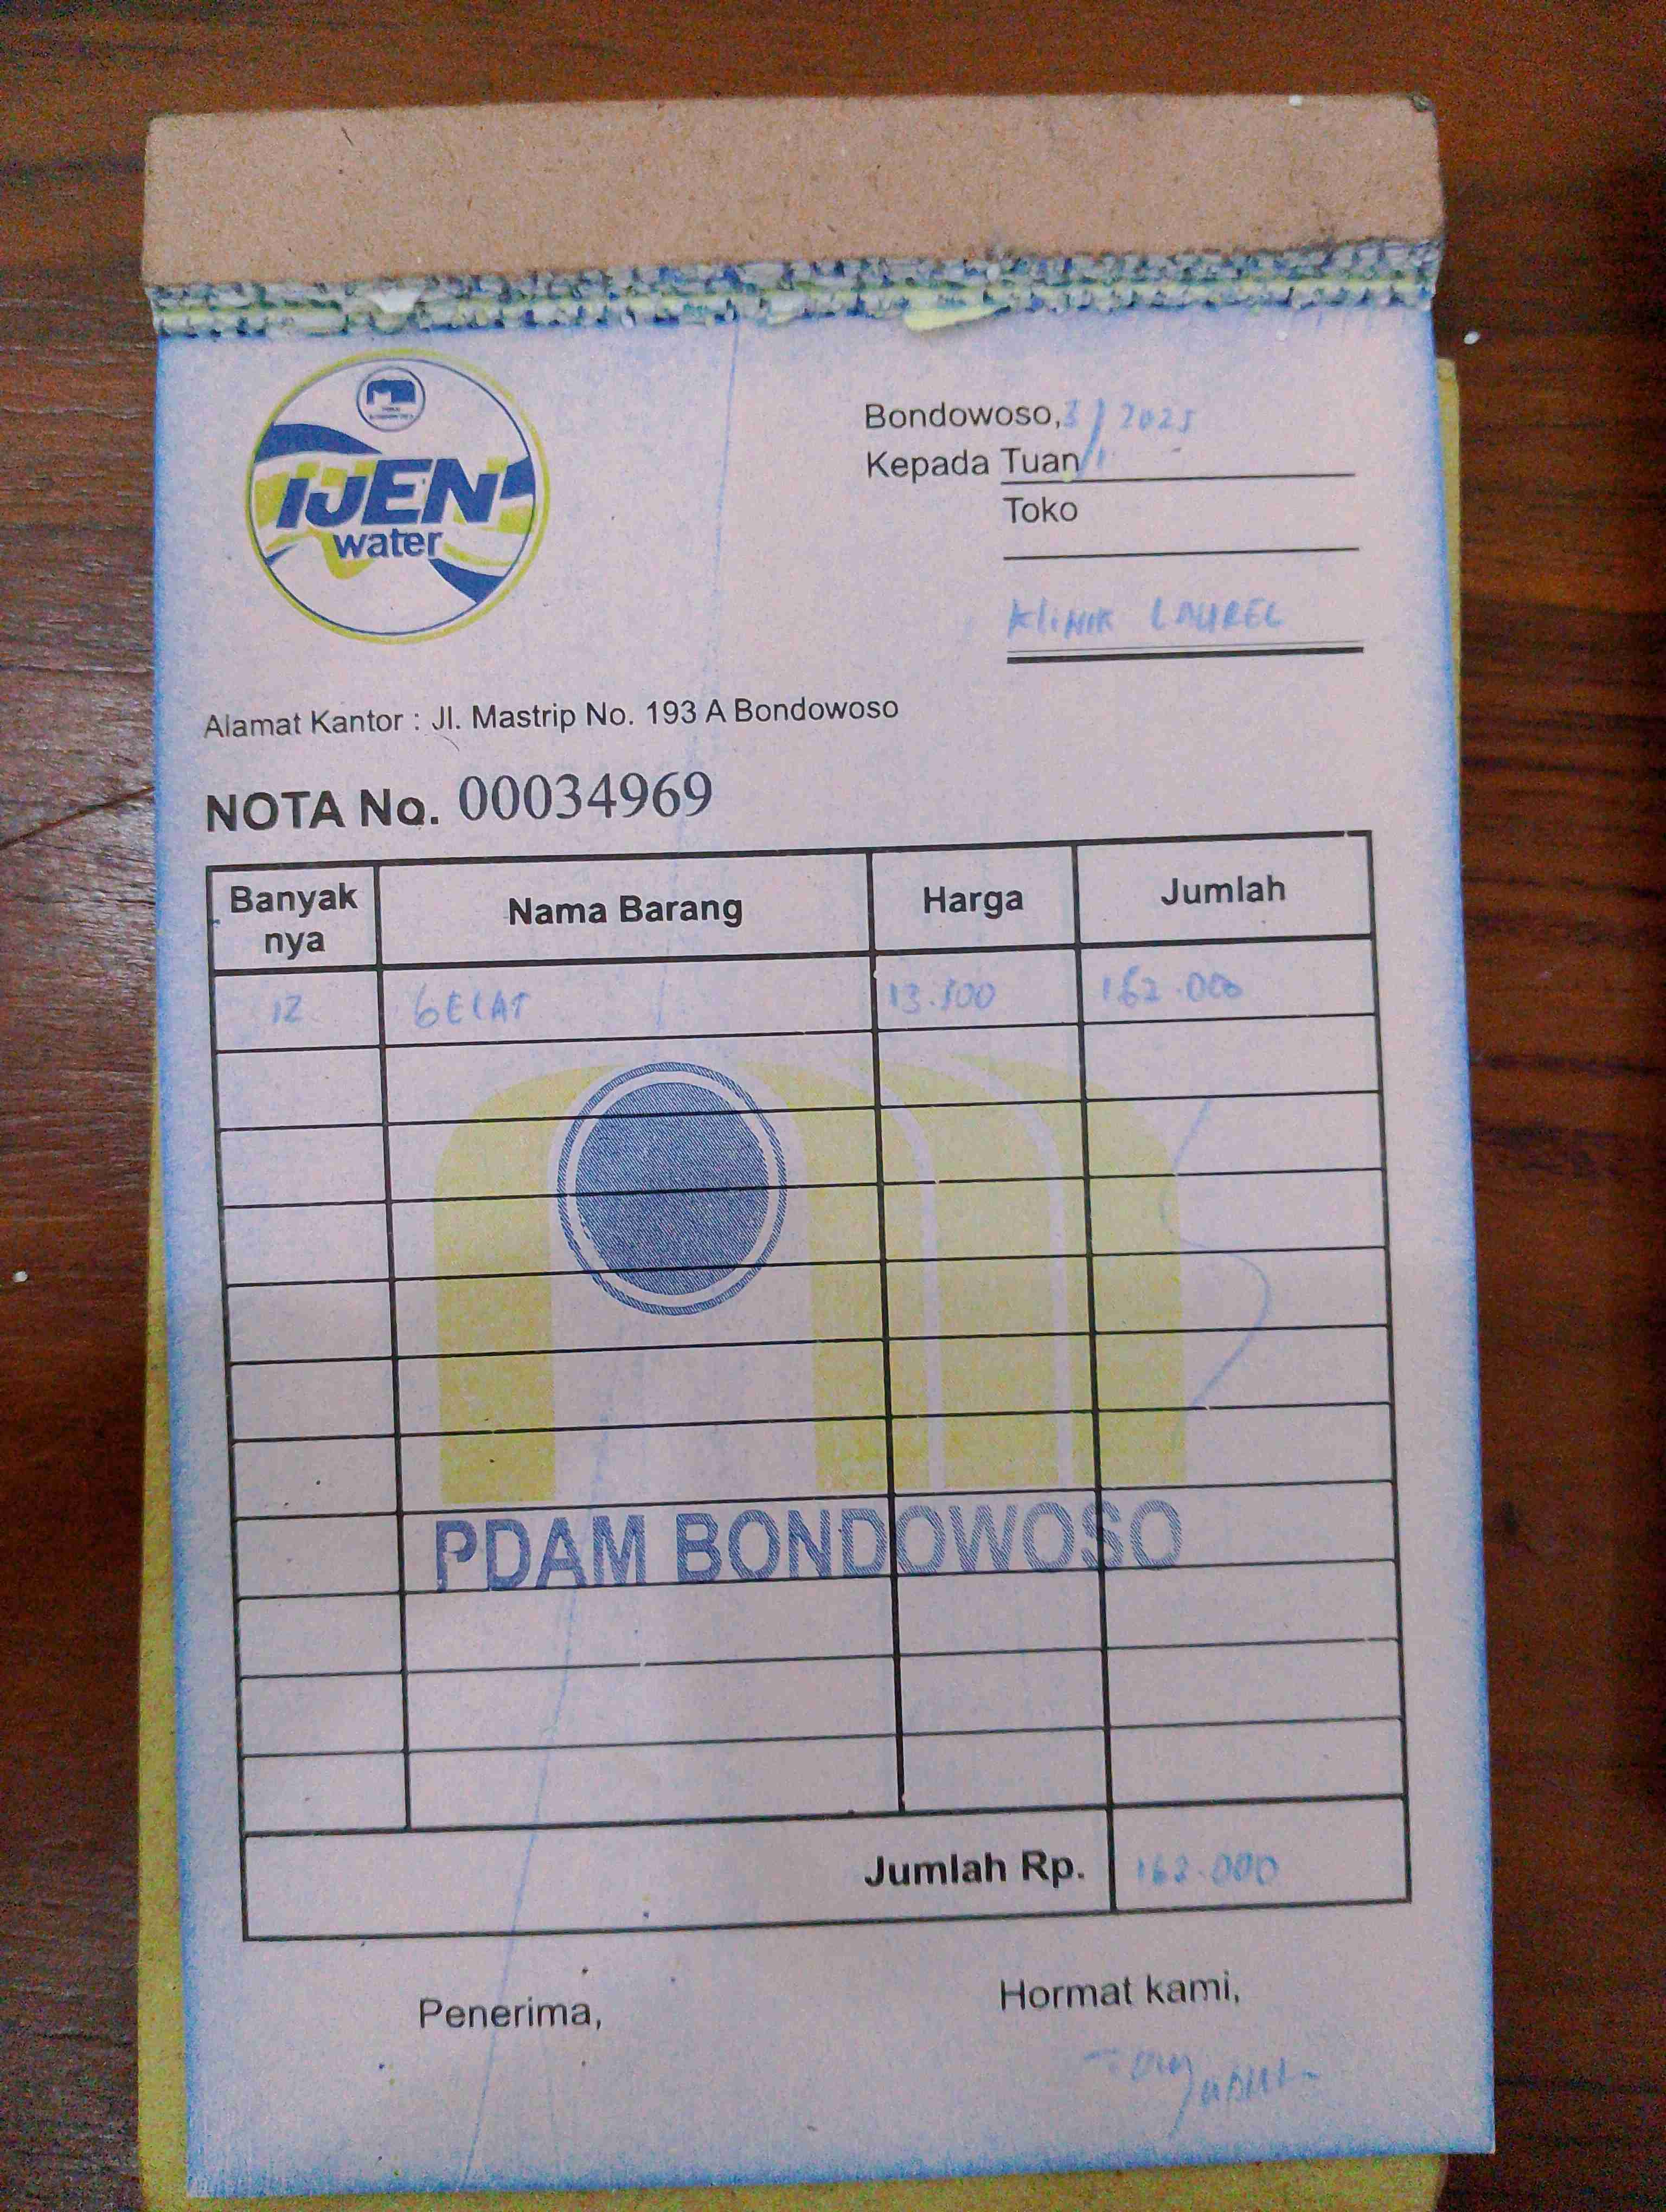 IJEN
water
Bondowoso, 3/1 2025
Kepada Tuan
Toko
KLINIK LAUREL
Alamat Kantor : Jl. Mastrip No. 193 A Bondowoso
NOTA No. 00034969
Banyak nya Nama Barang Harga Jumlah
12 GELAS 13.500 162.000
PDAM BONDOWOSO
Jumlah Rp. 162.000
Penerima,
Hormat kami,